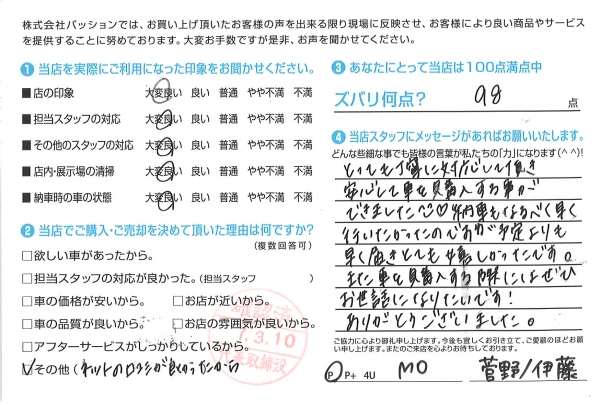 株式会社パッションでは、お買い上げ頂いたお客様の声を出来る限り現場に反映させ、お客様により良い商品やサービス
を提供することに努めております。大変お手数ですが是非、お声を聞かせてください。
❶ 当店を実際にご利用になった印象をお聞かせください。
■店の印象 大変良い 良い 普通 やや不満 不満
■担当スタッフの対応 大変良い 良い 普通 やや不満 不満
■その他のスタッフの対応 大変良い 良い 普通 やや不満 不満
■店内・展示場の清掃 大変良い 良い 普通 やや不満 不満
■納車時の車の状態 大変良い 良い 普通 やや不満 不満
❷ 当店でご購入・ご売却を決めて頂いた理由は何ですか?
(複数回答可)
□欲しい車があったから。
□担当スタッフの対応が良かった。(担当スタッフ )
□車の価格が安いから。 □お店が近いから。
□車の品質が良いから。 □お店の雰囲気が良いから
□アフターサービスがしっかりしているから。
□その他(ネットの口コミが良かったから
確認済
.3.10
代表取締役
❸ あなたにとって当店は100点満点中
ズバリ何点? 98 点
❹ 当店スタッフにメッセージがあればお願いいたします。
どんな些細な事でも皆様の言葉が私たちの「力」になります(^^)!
とっても丁寧に対応して頂き
安心して車を購入する事が
できました♡納車もなるべく早く
行いたかったのですが予定よりも
早く届きとても嬉しかったです。
また車を購入する際にはぜひ
お世話になりたいです!
ありがとうございました。
ご協力に心より御礼申し上げます。今後も宜しくお引き立て、ご愛顧のほどお願
い申し上げます。またのご来店を心よりお待ちしております。
P P+ 4U MO 菅野/伊藤